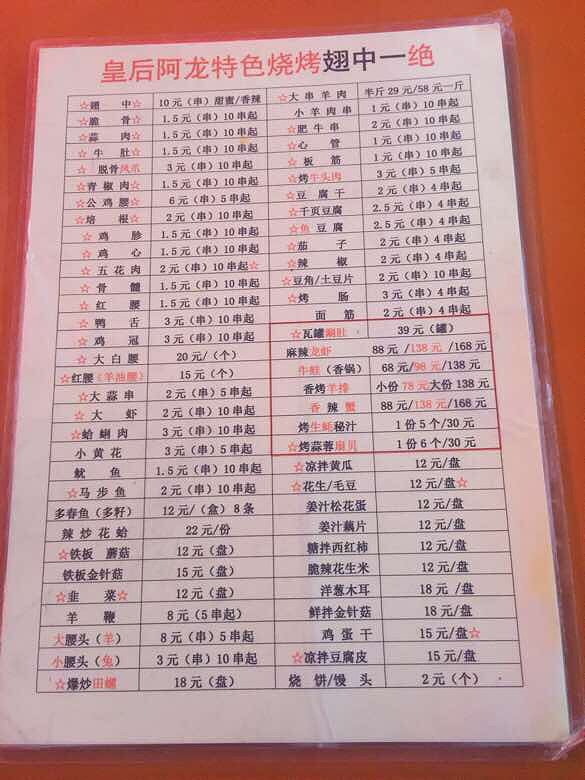 皇后阿龙特色烧烤翅中一绝
☆翅 中 10元（串）甜蜜/香辣
☆脆 骨 1.5元（串）10串起
☆蒜 肉 1.5元（串）10串起
☆牛 肚 1.5元（串）10串起
☆ 脱骨凤爪 3元（串）10串起
☆青椒肉 1.5元（串）10串起
☆公鸡腰 6元（串）5串起
☆培 根 2元（串）10串起
☆鸡 胗 1.5元（串）10串起
☆鸡 心 1.5元（串）10串起
☆五花肉 2元（串）10串起☆
☆骨 髓 1.5元（串）10串起
☆红 腰 1.5元（串）10串起
☆鸭 舌 3元（串）10串起
☆鸡 冠 3元（串）10串起
☆大白腰 20元/（个）
☆红腰（羊油腰） 15元（个）
☆大蒜串 2元（串）5串起
☆大 虾 2元（串）10串起
☆蛤蜊肉 3元（串）10串起
小黄花 3元（串）10串起
鱿 鱼 1.5元（串）10串起
☆马步鱼 2元（串）10串起
多春鱼（多籽） 12元/（盒）8条
辣炒花蛤 22元/份
☆铁板 蘑菇 12元（盘）
铁板金针菇 15元（盘）
☆韭 菜☆ 12元（盘）
羊 鞭 8元（5串起）
大腰头（羊） 8元（串）5串起
小腰头（兔） 3元（串）10串起
☆爆炒田螺 18元（盘）
☆大串羊肉 半斤29元/58元一斤
小羊肉串 1元（串）10串起
☆肥牛串 2元（串）10串起
☆心 管 1元（串）10串起
☆板 筋 1元（串）10串起
☆烤牛头肉 2元（串）10串起
☆豆腐干 2元（串）4串起
☆千页豆腐 2.5元（串）4串起
☆鱼豆腐 2.5元（串）4串起
☆茄 子 2元（串）4串起
☆辣 椒 2元（串）4串起
☆豆角/土豆片 2元（串）4串起
☆烤 肠 3元（串）4串起
面 筋 2元（串）4串起
☆瓦罐涮肚 39元（罐）
麻辣龙虾 88元/138元/168元
牛蛙（香锅） 68元/98元/138元
香烤羊排 小份78元大份138元
香辣蟹 88元/138元/168元
烤生蚝秘汁 1份5个/30元
☆烤蒜蓉扇贝 1份6个/30元
☆凉拌黄瓜 12元/盘
☆花生/毛豆 12元/盘
姜汁松花蛋 12元/盘
姜汁藕片 12元/盘
糖拌西红柿 12元/盘
脆辣花生米 12元/盘
洋葱木耳 18元 /盘
鲜拌金针菇 18元/盘
鸡蛋干 15元/盘☆
☆凉拌豆腐皮 15元/盘
烧 饼/馒 头 2元（个）